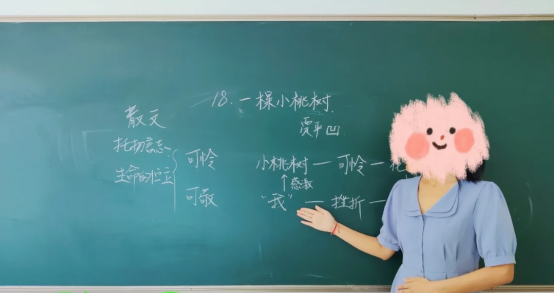 18.一棵小桃树
贾平凹
散文
托物言志
生命的
可怜
可敬
小桃树—可怜—
↑感激
“我”—挫折—